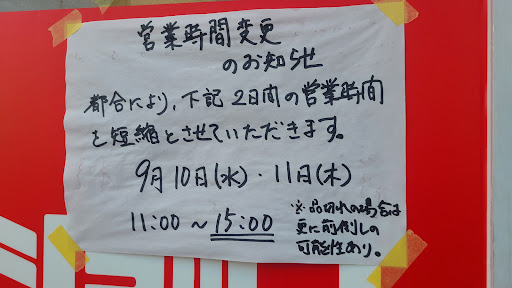 営業時間変更
のお知らせ
都合により、下記2日間の営業時間
を短縮とさせていただきます。
9月10日(水)・11日(木)
11:00～15:00
※品切れの場合は
更に前倒しの
可能性あり。